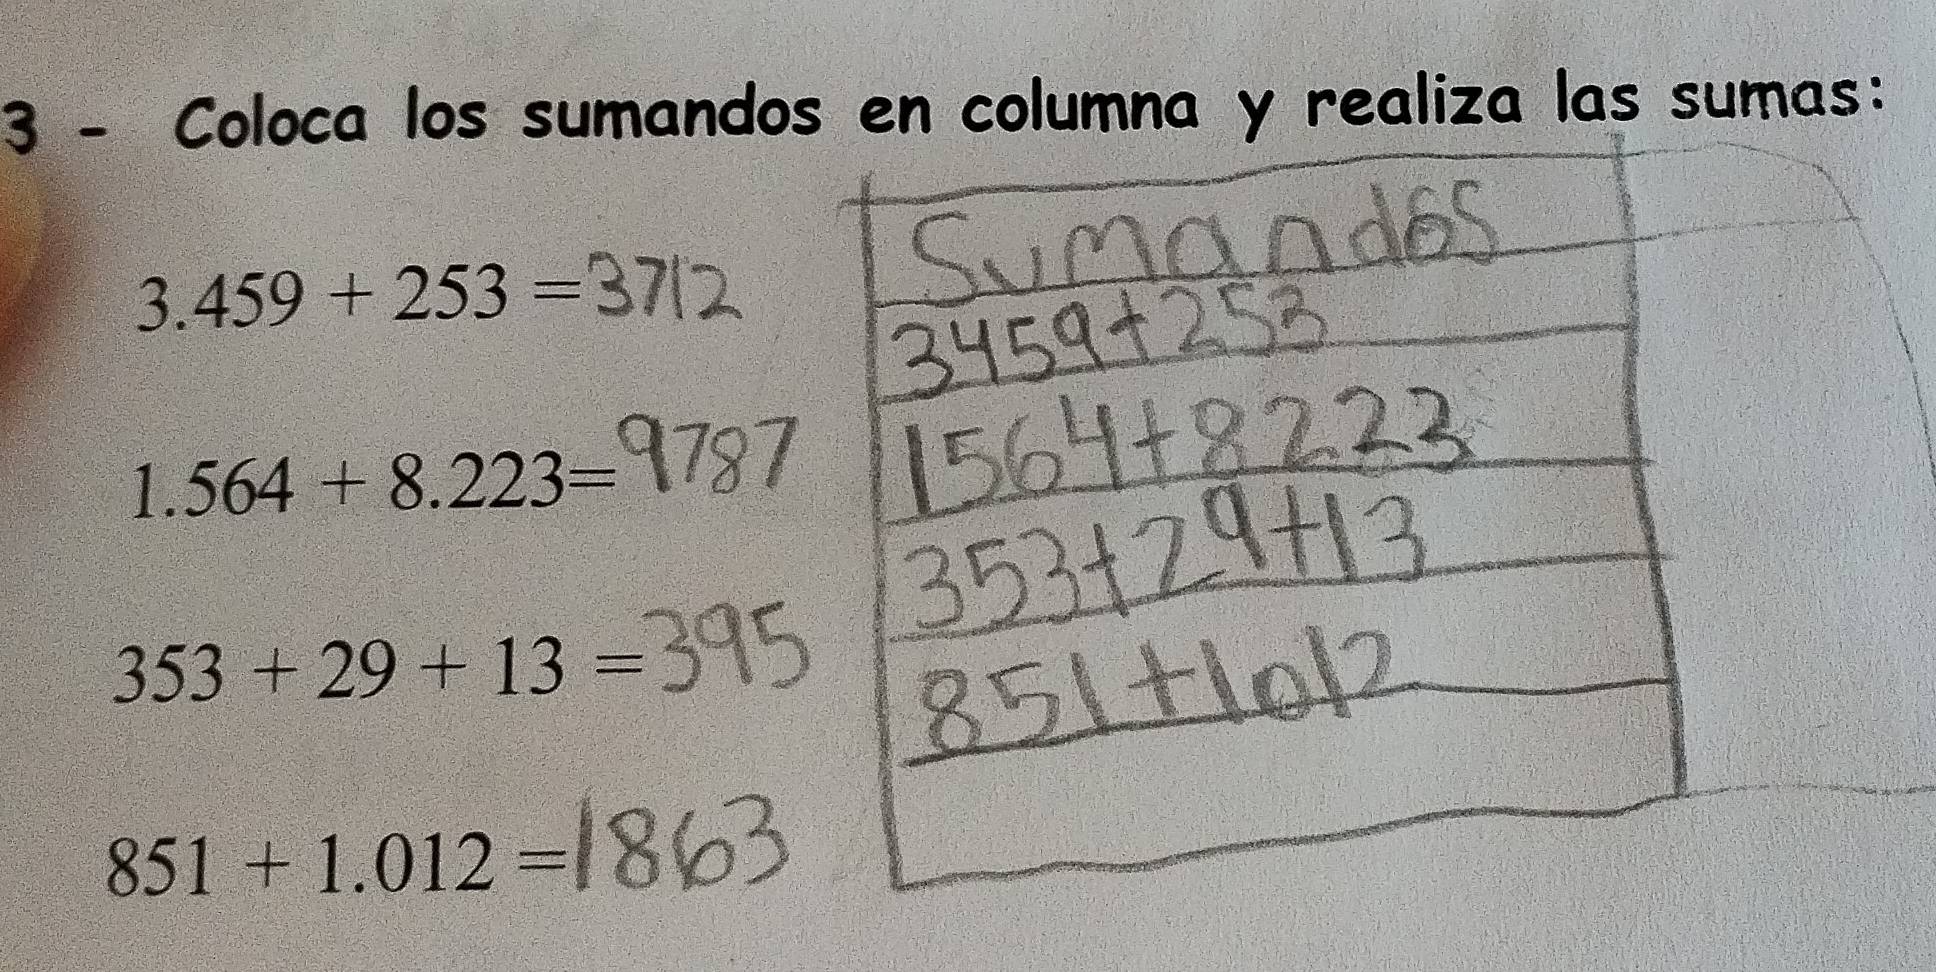 3 - Coloca los sumandos en columna y realiza las sumas:
3.459 + 253 = 3712
1.564 + 8.223= 9787
353 + 29 + 13 = 395
851 + 1.012 = 1863
Sumandos
3459+253
1564+8223
353+29+13
851+1012